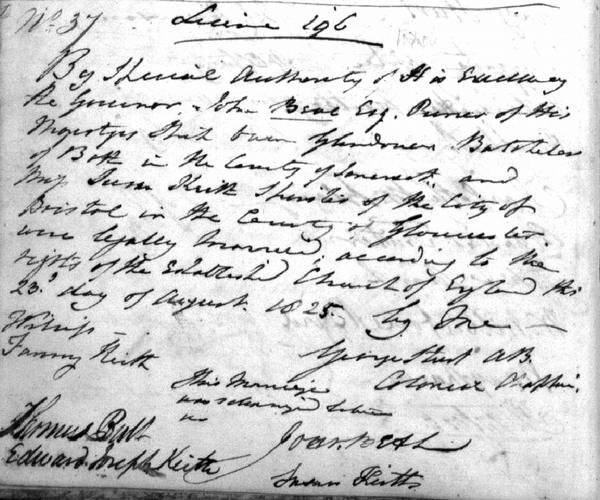 No 37
Licence 196
By Special Authority of His Excellency
the Governor - John Beal Esq. Purser of His
Majestys Ship Owen Glendower Batchelor
of Bath in the County of Somerset and
Miss Susan Keith of the City of
Bristol in the County of Gloucester
were legally Married, according to the
rights of the Established Church of England this
23d day of August 1825. by me
Witness
Fanny Keith
George AB.
Colonial Chaplain.
This Marriage
was solemnized between
us
Thomas Butt
John Beal
Edward Joseph Keith
Susan Keith